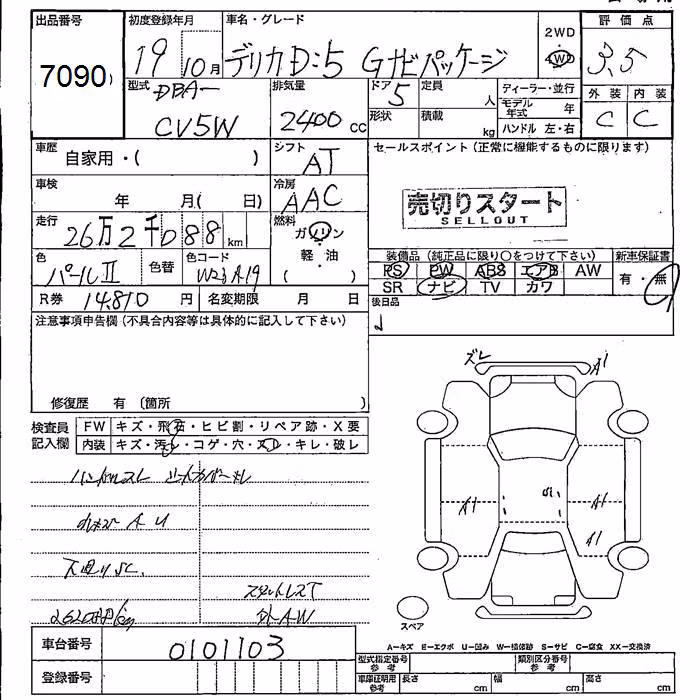 出品番号 初度登録年月 車名・グレード 2WD 評価点
7090 19 10月 デリカD:5 Gナビパッケージ 4WD 3.5
型式 DBA- 排気量 ドア 5 定員 人 ディーラー・並行 外装 内装
CV5W 2400 cc 形状 積載 kg モデル年式 年 C C
ハンドル 左・右
車歴 自家用・( ) シフト AT セールスポイント (正常に機能するものに限ります)
車検 年 月( 日) 冷房 AAC 売切りスタート
SELLOUT
走行 26万2千088km 燃料 ガソリン
軽・油
( )
色 パールII 色替 色コード W28 A19 装備品 (純正品に限り○をつけて下さい) 新車保証書
PS PW ABS エアB AW 有・無
R券 14.810 円 名変期限 月 日 SR ナビ TV カワ
注意事項申告欄 (不具合内容等は具体的に記入して下さい) 後日品
修復歴 有 (箇所 )
ズレ A1
検査員 FW キズ・飛石・ヒビ割・リペア跡・X要
記入欄 内装 キズ・汚レ・コゲ・穴・スレ・キレ・破レ
ハンドルスレ シートカバー
A1 A1
A1
A U
下廻りSC.
スタットレスT
外AW
スペア
車台番号 0101103
A－キズ E－エクボ U－凹み W－補修跡 S－サビ C－腐食 XX－交換済
型式指定番号 参考 類別区分番号 参考
登録番号 車庫証明用 参考 長さ cm 幅 cm 高さ cm